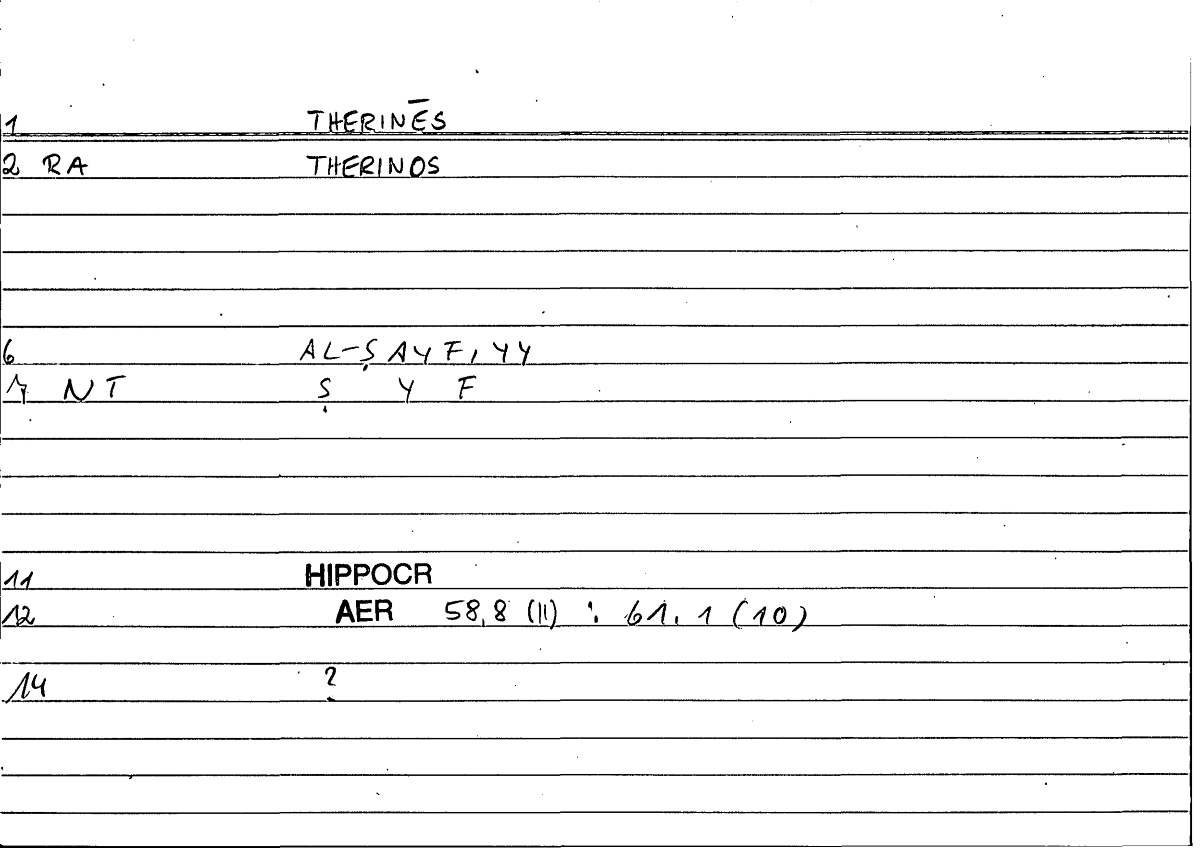 1 THERINĒS
2 RA THERINOS
6 AL-ṢAYFIYY
7 NT Ṣ Y F
11 HIPPOCR
12 AER 58,8 (11) : 61.1 (10)
14 ?